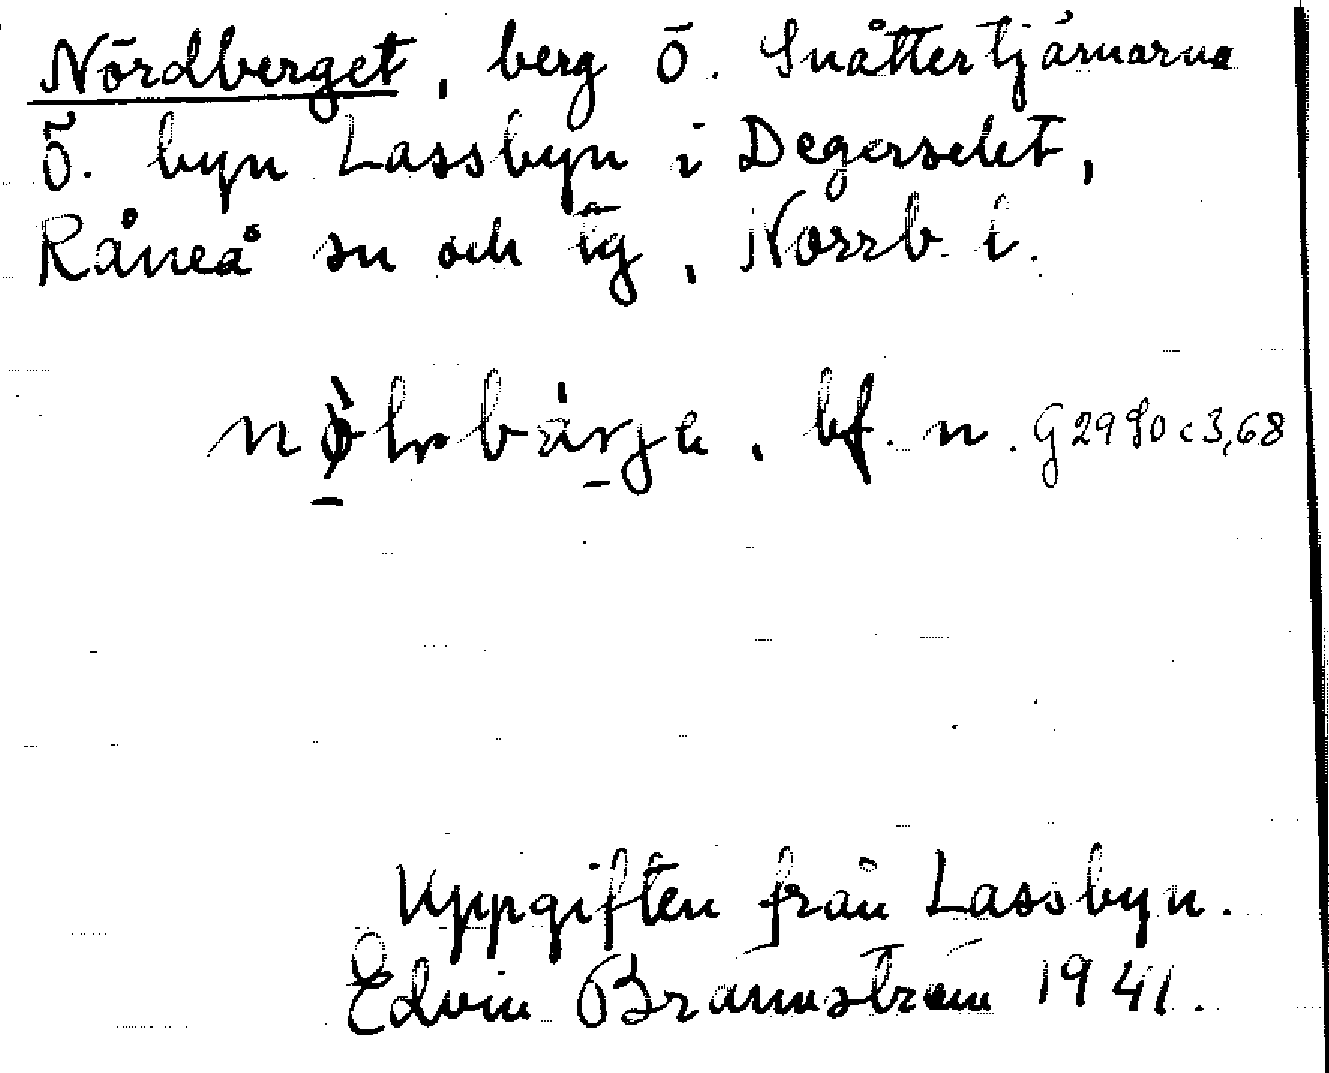 Nördberget, berg ö. Snåttertjärnarna
ö. byn Lassbyn i Degerselet,
Råneå sn och tg, Norrb. l.
bf. n. G 29 80 c 3,68
Uppgiften från Lassbyn.
Edvin Brännström 1941.